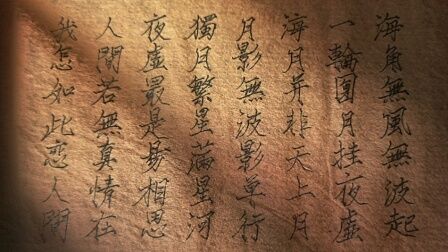 海角無風無波起
一輪圓月挂夜虛
海月并非天上月
月影無波影單行
獨月繁星滿星河
夜虛最是易相思
人間若無真情在
我怎如此戀人間